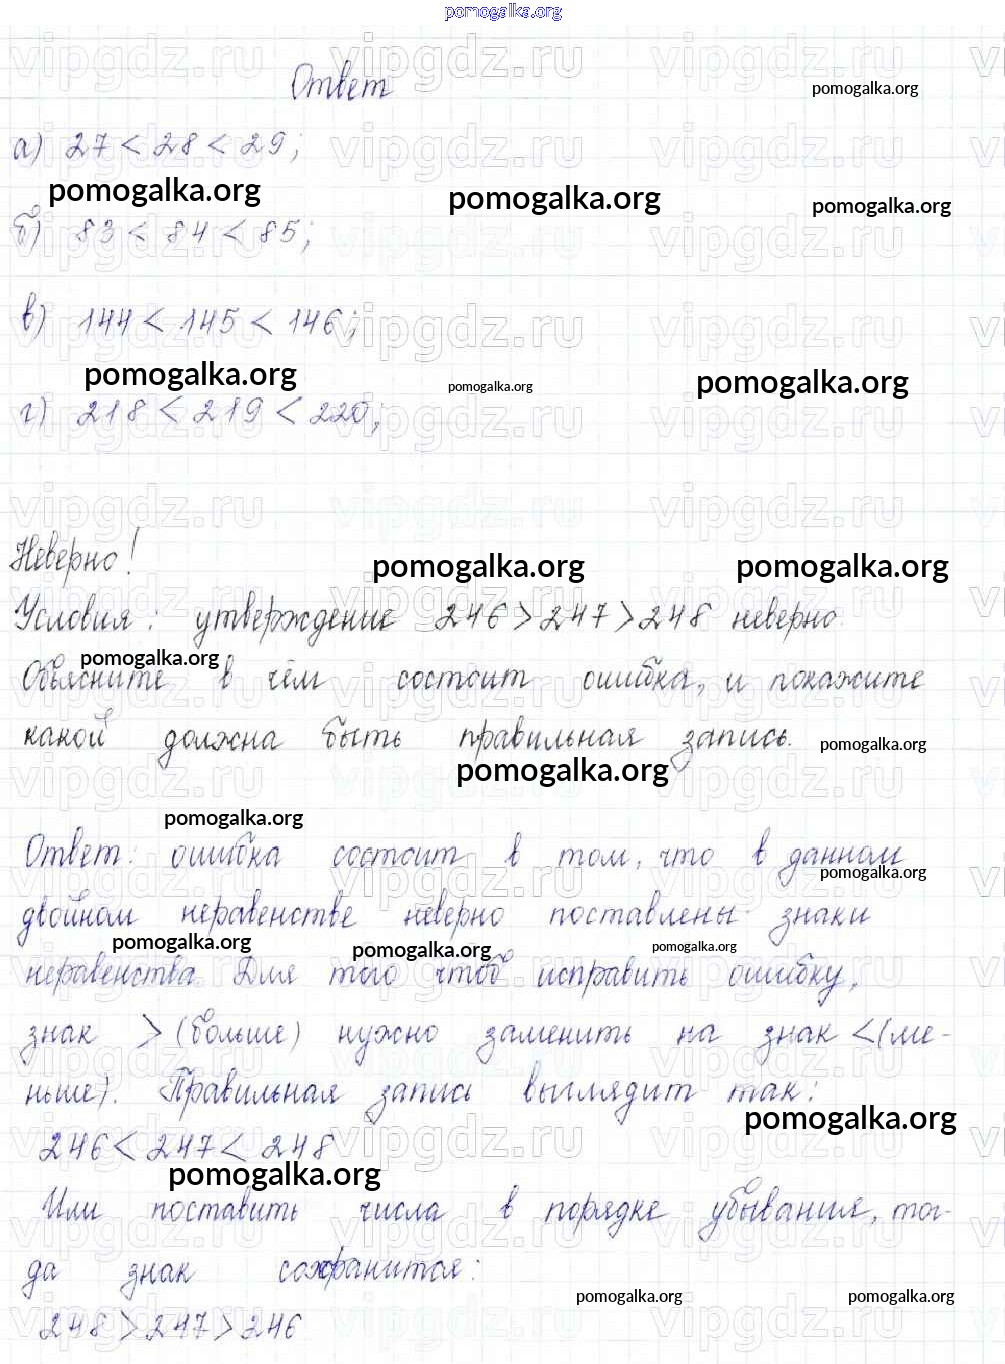 pomogalka.org
Ответ
pomogalka.org
а) 27 < 28 < 29;
pomogalka.org pomogalka.org pomogalka.org
б) 83 < 84 < 85;
в) 144 < 145 < 146;
pomogalka.org pomogalka.org pomogalka.org
г) 218 < 219 < 220;
Неверно!
pomogalka.org pomogalka.org
Условия: утверждение 246 > 247 > 248 неверно.
pomogalka.org
Объясните в чём состоит ошибка, и покажите
какой должна быть правильная запись.
pomogalka.org
pomogalka.org
pomogalka.org
Ответ: ошибка состоит в том, что в данном
pomogalka.org
двойном неравенстве неверно поставлены знаки
pomogalka.org pomogalka.org pomogalka.org
неравенства. Для того чтоб исправить ошибку,
знак > (больше) нужно заменить на знак < (ме-
ньше). Правильная запись выглядит так:
pomogalka.org
246 < 247 < 248
pomogalka.org
Или поставить числа в порядке убывания, тог-
да знак сохранится:
pomogalka.org pomogalka.org
248 > 247 > 246
vipgdz.ru